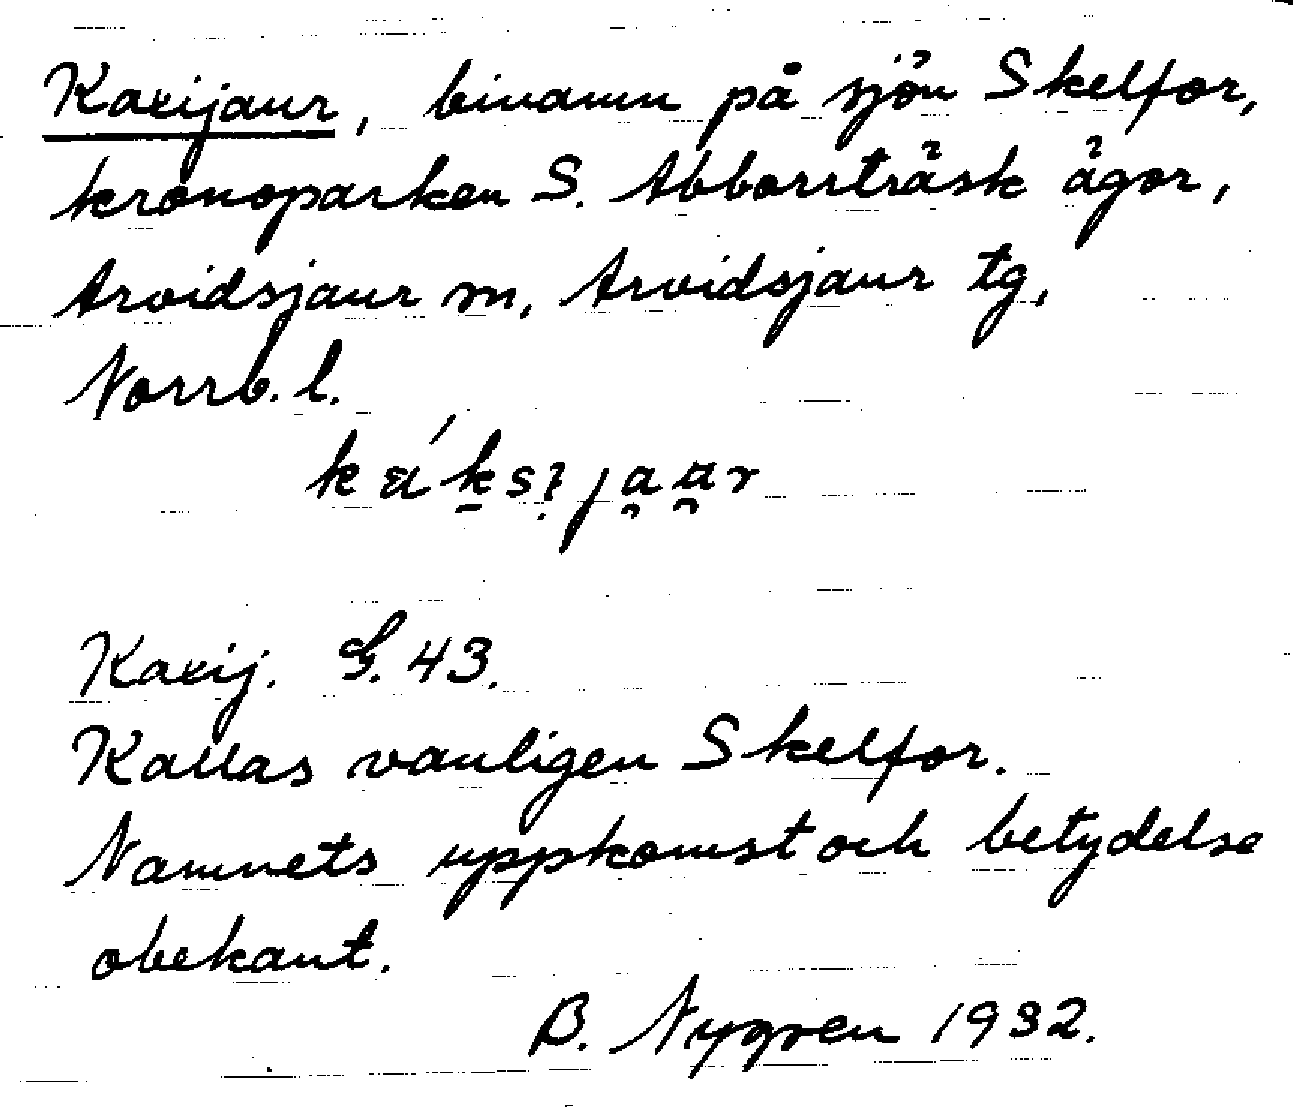 Kaxijaur, binamn på sjön Skelfor,
kronoparken S. Abborrträsk ägor,
Arvidsjaur sn, Arvidsjaur tg,
Norrb. l.
Kaxij. G. 43.
Kallas vanligen Skelfor.
Namnets uppkomst och betydelse
obekant.
B. Nygren 1932.